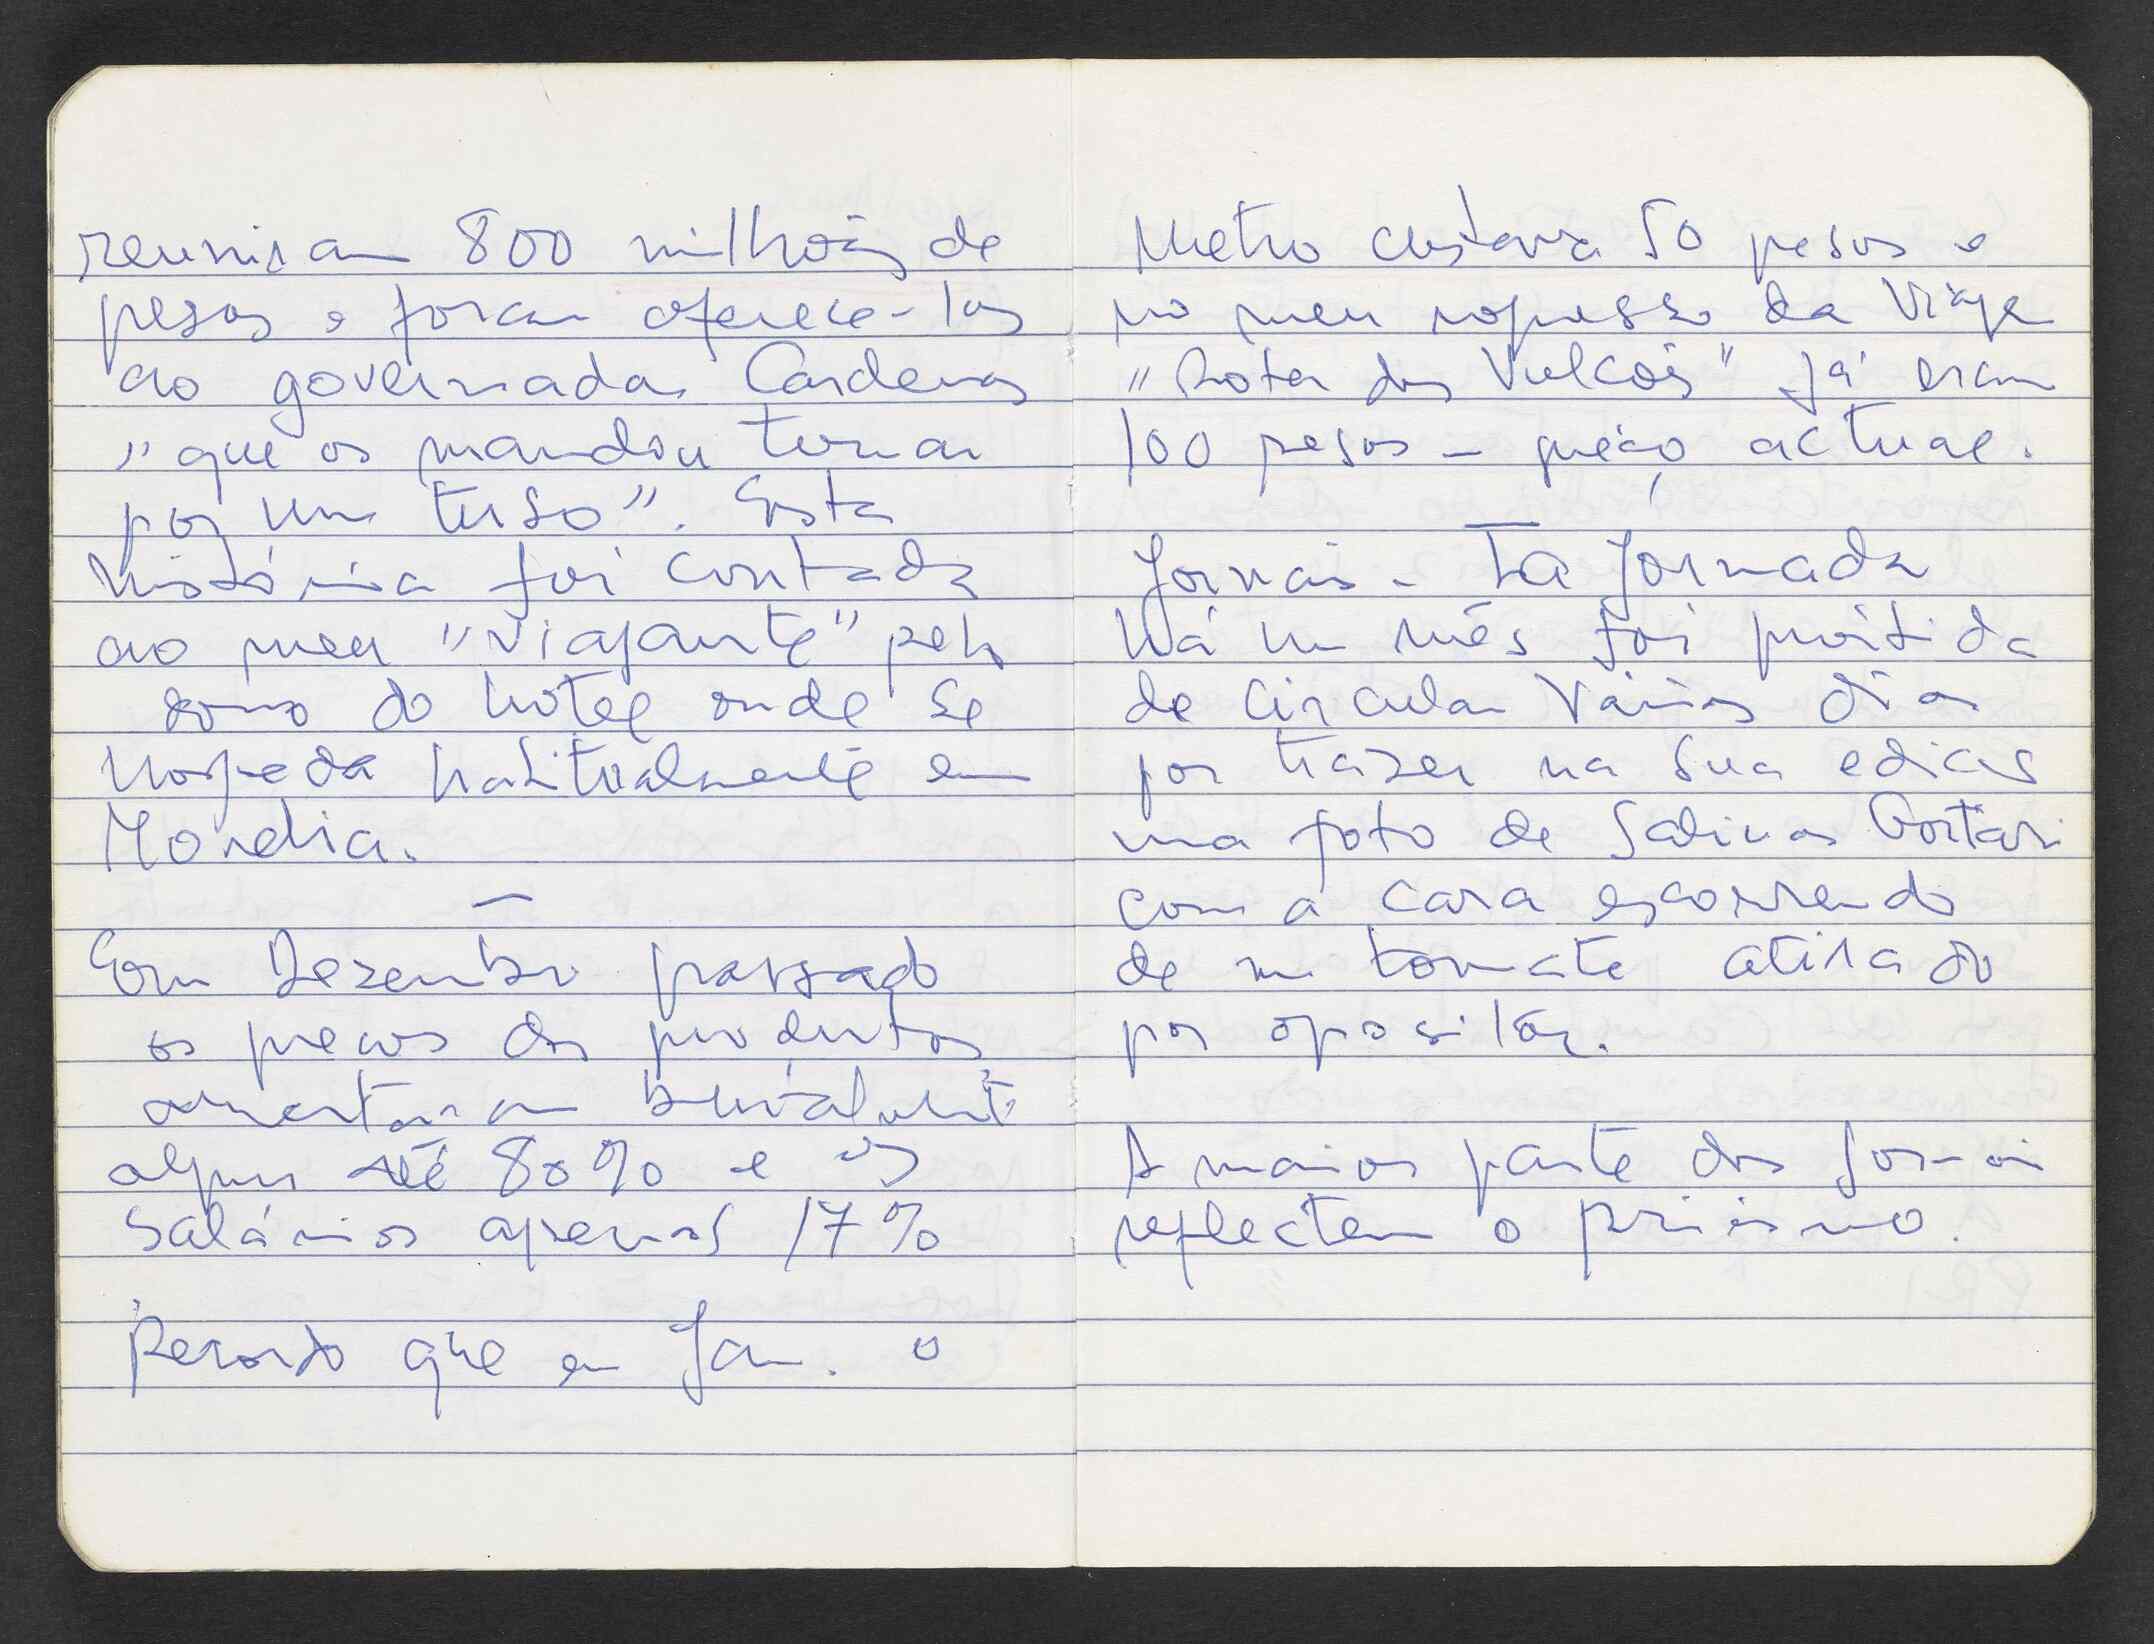 reuniram 800 milhões de
pesos e foram oferece-los
ao governador Cardenas
"que os mandou tomar
por um tubo". Esta
história foi contada
ao meu "viajante" pelo
dono do hotel onde se
hospeda habitualmente em
Morelia.
—
Em Dezembro passado
os preços dos produtos
aumentaram
alguns até 80% e os
salários apenas 17%
Recordo que em Jan. o
Metro custava 50 pesos e
no meu regresso da viagem
"Rota dos Vulcões" já eram
100 pesos - preço actual.
—
Jornais - La Jornada
Há um mês foi proibida
de circular vários dias
por trazer na sua edição
uma foto de Salinas Gortari
com a cara escorrendo
de um tomate atirado
por opositor.
A maior parte dos jornais
reflectem o priismo.